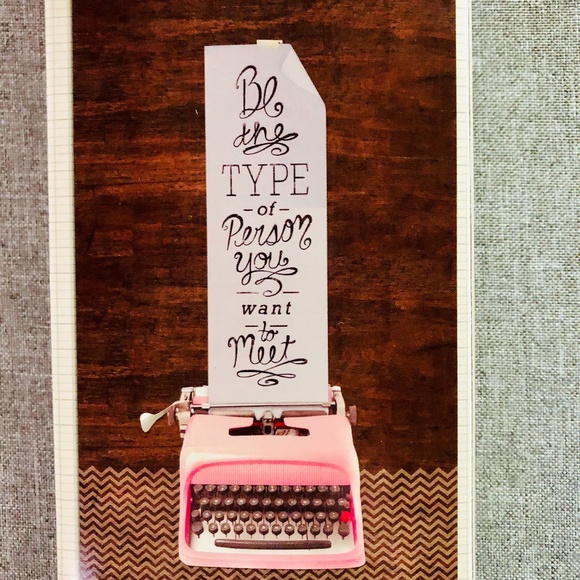 Be
the
TYPE
of
Person
you
want
to
Meet